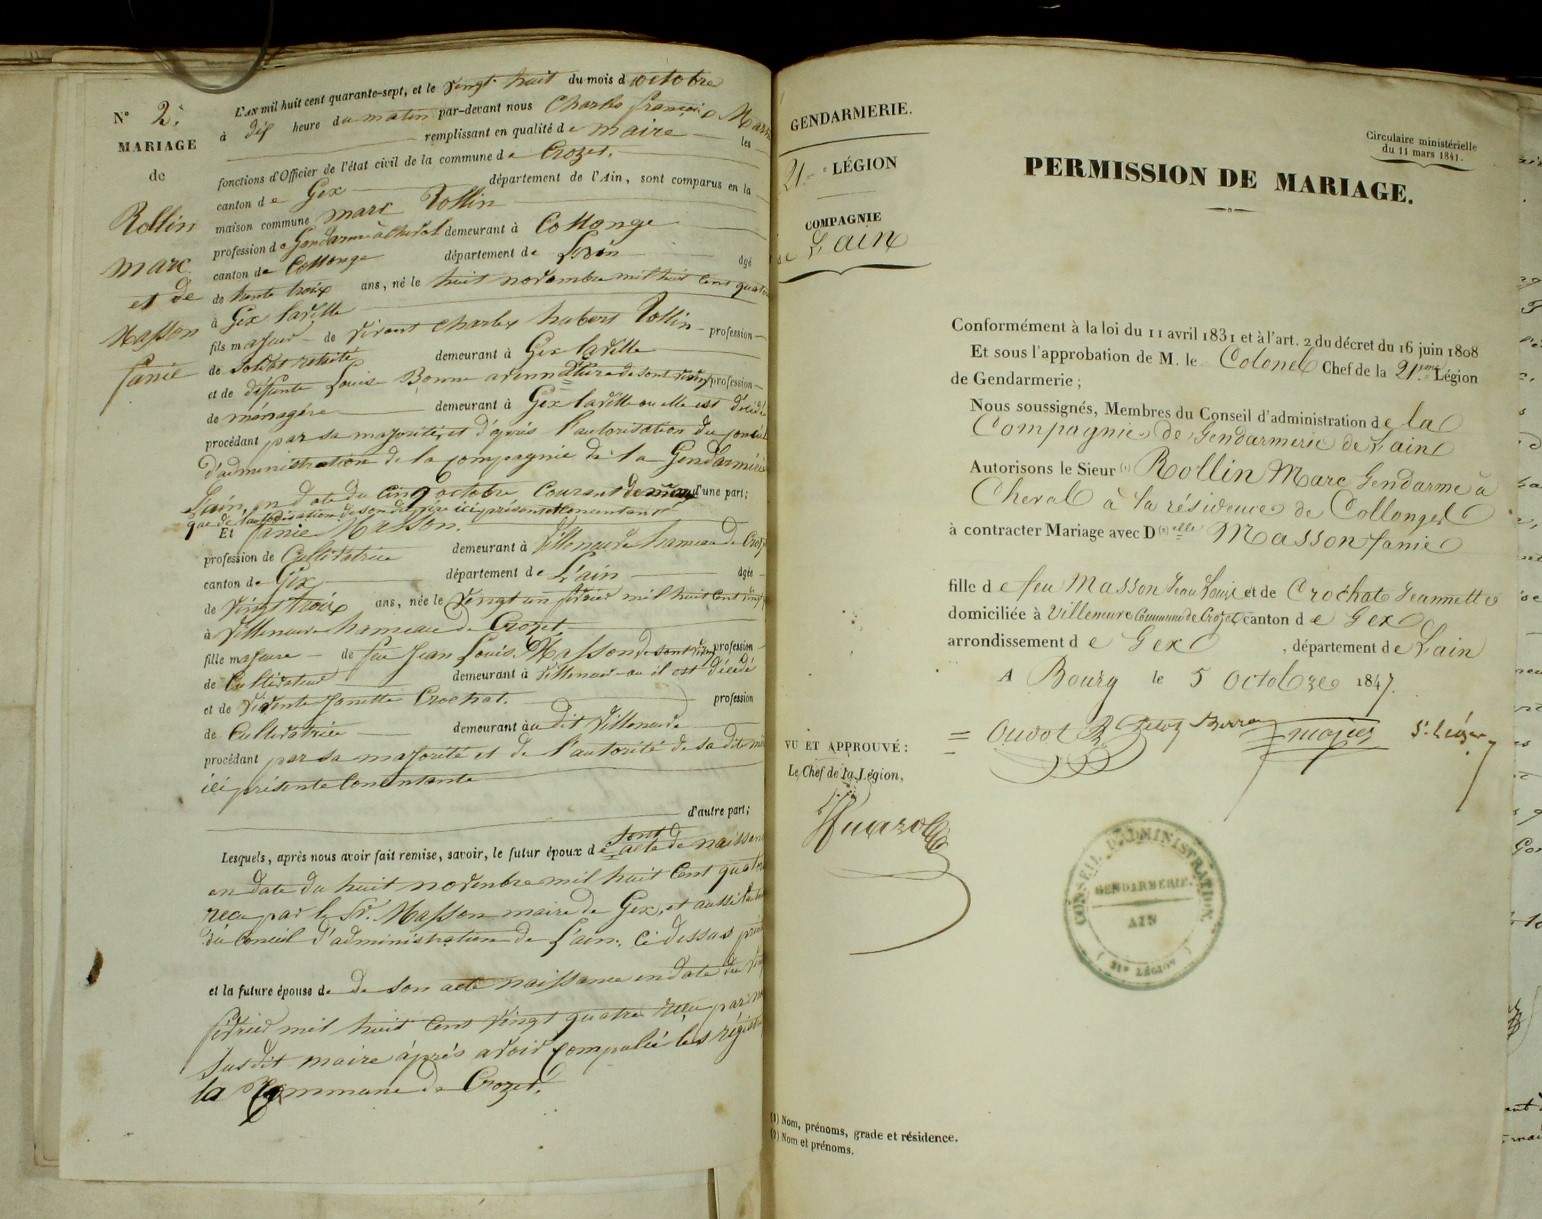 N° 2.
MARIAGE
de
Rollin
Marc
et de
Masson
fanie
L'AN mil huit cent quarante-sept, et le vingt huit du mois d octobre
à dix heure du matin par-devant nous Charles françois Mass
remplissant en qualité de maire les
fonctions d'Officier de l'état civil de la commune de Crozet.
canton de Gex département de l'Ain, sont comparus en la
maison commune marc Rollin
profession de Gendarme à cheval demeurant à Collonge
canton de Collonge département de L'ain dgé
de trente trois ans, né le huit novembre mil huit cent quato
à Gex laville
fils majeur de vivant Charles hubert Rollin profession
de soldat retraité demeurant à Gex laville
et de déffunte Louise Bonne profession
de ménagère demeurant à Gex laville ou elle est décédé
procédant par sa majorité, et d'après l'autorisation du conseil
d'administration de la compagnie de la Gendarmérie
L'ain, en date du cinq octobre, courant d'une part;
que de l'autorisation de son dit père ici présent et consentant
Et fanie Masson.
profession de Cultivatrice demeurant à Villeneuve hameau de Croz
canton de Gex département de L'ain dgée
de vingt trois ans, née le vingt un fevrier mil huit cent vingt
à Villeneuve hameau de Crozet
fille majeure de feu Jean Louis Masson profession
de Cultivateur demeurant à Villeneuve ou il est décédé
et de vivente Janette Crochat. profession
de Cultivatrice demeurant au dit Villeneuve
procédant par sa majorité et de l'autorité de sa dite mè
ici présente consentante
d'autre part;
Lesquels, après nous avoir fait remise, savoir, le futur époux de son acte de naissan
en date du huit novembre mil huit cent quato
recu par le Sr. Masson maire de Gex, et aussi l'au
du Conseil d'administration de L'ain. Ci dessus
et la future épouse de de son acte naissance en date du vin
fevrier mil huit cent vingt quatre recu par
susdit maire après avoir compulsé les régist
la Commune de Crozet.
GENDARMERIE.
21 LÉGION
COMPAGNIE
de L'ain
Circulaire ministérielle
du 11 mars 1841.
PERMISSION DE MARIAGE.
Conformément à la loi du 11 avril 1831 et à l'art. 2 du décret du 16 juin 1808
Et sous l'approbation de M. le Colonel Chef de la 21me Légion
de Gendarmerie;
Nous soussignés, Membres du Conseil d'administration de la
Compagnie de Gendarmerie de L'ain
Autorisons le Sieur (1) Rollin Marc Gendarme à
Cheval à la résidence de Collonges
à contracter Mariage avec D(2) elle Masson fanie
fille de feu Masson Jean Louis et de Crochat Jeannette
domiciliée à Villeneuve Commune de Crozet canton de Gex
arrondissement de Gex, département de L'ain
A Bourg le 5 Octobre 1847.
VU ET APPROUVÉ:
Le Chef de la Légion,
CONSEIL D'ADMINISTRATION
GENDARMERIE.
AIN
21e LÉGION
(1) Nom, prénoms, grade et résidence.
(2) Nom et prénoms.